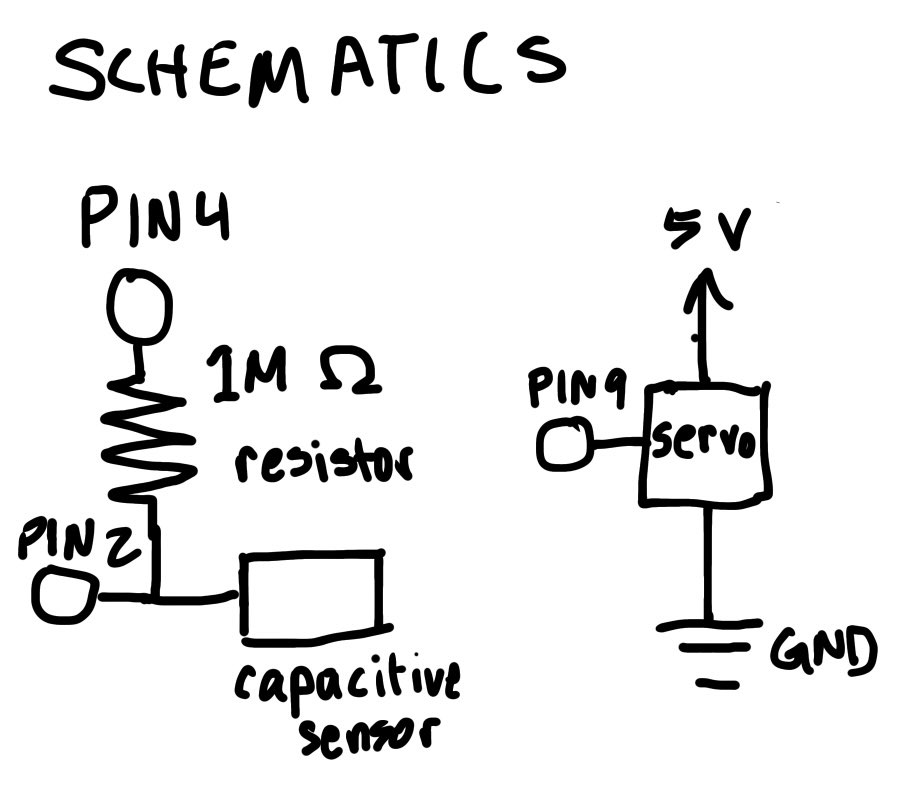 SCHEMATICS
PIN4
1M Ω
resistor
PIN 2
capacitive
sensor
5V
PIN9
servo
GND